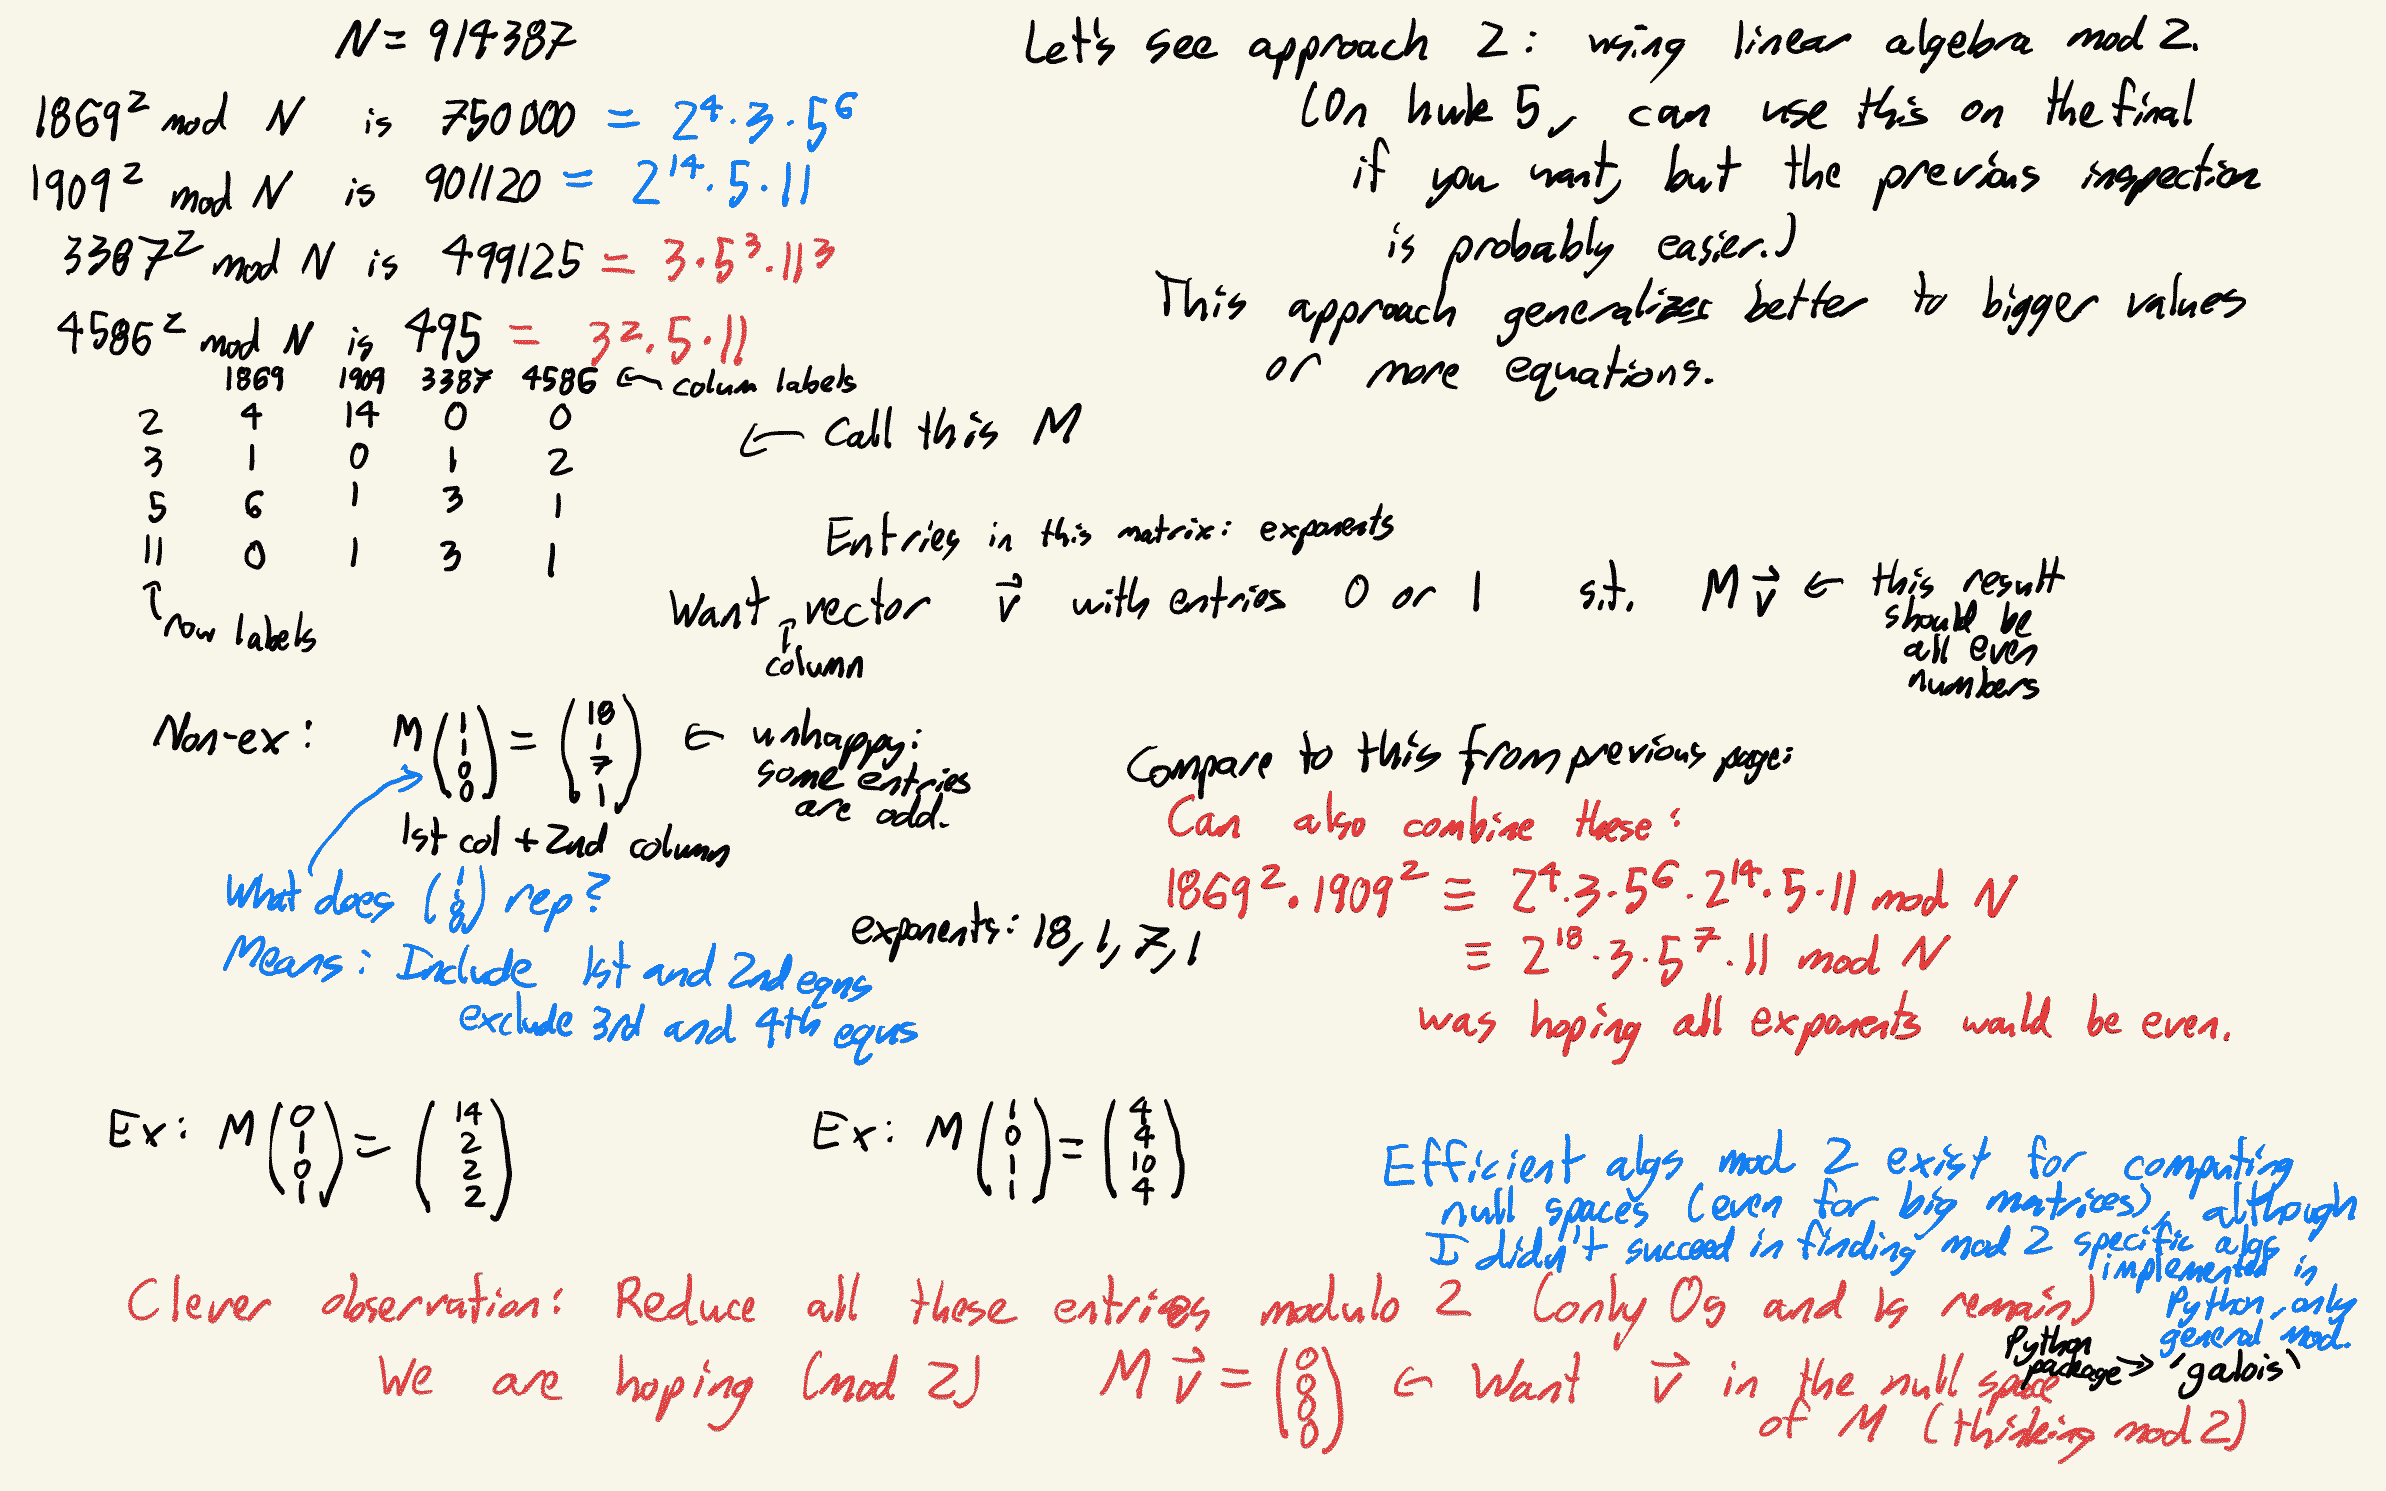 N = 914387
1869² mod N is 750000 = 2⁴·3·5⁶
1909² mod N is 901120 = 2¹⁴·5·11
3387² mod N is 499125 = 3·5³·11³
4586² mod N is 495 = 3²·5·11
1869 1909 3387 4586 ← colum labels
2 4 14 0 0
3 1 0 1 2
5 6 1 3 1
11 0 1 3 1
↑ row labels
← Call this M
Let's see approach 2: using linear algebra mod 2.
(On hwk 5, can use this on the final
if you want, but the previous inspection
is probably easier.)
This approach generalizes better to bigger values
or more equations.
Entries in this matrix: exponents
Want vector v⃗ with entries 0 or 1 s.t. M v⃗ ← this result
should be
all even
numbers
↑ column
Non-ex: M (1 1 0 0) = (18 1 7 1) ← unhappy:
some entries
are odd.
1st col + 2nd column
What does (1 1 0 0) rep?
Means: Include 1st and 2nd eqns
exclude 3rd and 4th equs
Compare to this from previous page:
Can also combine these:
1869²·1909² ≡ 2⁴·3·5⁶·2¹⁴·5·11 mod N
≡ 2¹⁸·3·5⁷·11 mod N
exponents: 18, 1, 7, 1
was hoping all exponents would be even.
Ex: M (0 1 0 1) = (14 2 2 2)
Ex: M (1 0 1 1) = (4 4 10 4)
Efficient algs mod 2 exist for computing
null spaces (even for big matrices), although
I didn't succeed in finding mod 2 specific algs
implemented in
Python, only
general mod.
Python
package → 'galois'
Clever observation: Reduce all these entries modulo 2 (only 0s and 1s remain)
We are hoping (mod 2) M v⃗ = (0 0 0 0) ← Want v⃗ in the null space
of M (thinking mod 2)